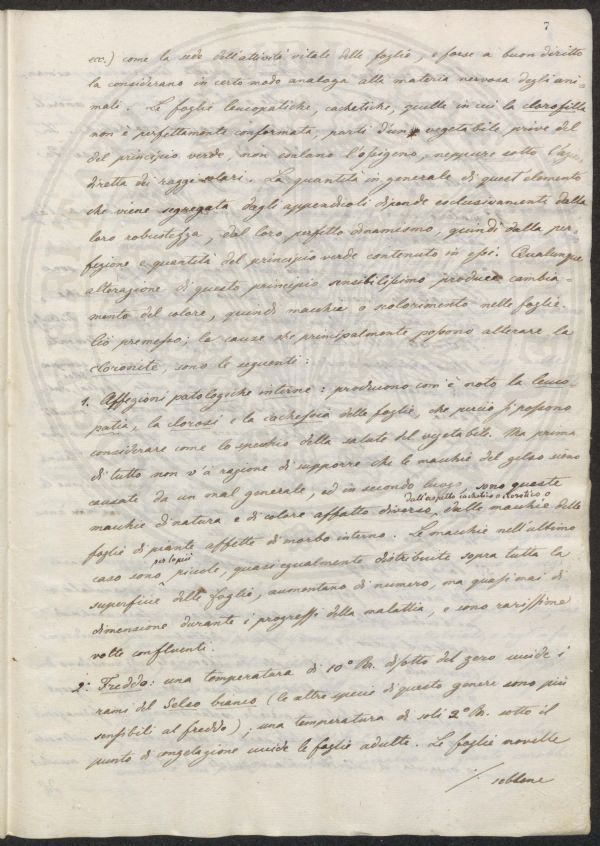 7
ecc.) come la sede dell'attività vitale delle foglie, e forse a buon diritto
la considerano in certo modo analoga alla materia nervosa degli ani-
mali. Le foglie leucopatiche, cachetiche, quelle in cui la clorofilla
non è perfettamente conformata, parti d'un vegetabile prive del
del principio verde, non esalano l'ossigeno, neppure sotto l'
diretta dei raggi solari. La quantità in generale di quest'elemento
che viene segregata dagli appendicoli dipende esclusivamente dalla
loro robustezza, dal loro perfetto dinamismo, quindi dalla per-
fezione e quantità del principio verde contenuto in essi. Qualunque
alterazione di questo principio sensibilissimo produce cambia-
mento del colore, quindi macchia o scolorimento nelle foglie.
Ciò premesso; le cause che principalmente possono alterare la
Cloronite sono le seguenti:
1. Affezioni patologiche interne: producono com'è noto la leuco-
patia, la clorosi e la cachessia delle foglie, che perciò si possono
considerare come lo specchio della salute del vegetabile. Ma prima
di tutto non v'à ragione di supporre che le macchie del gelso sieno
causate da un mal generale, ed in secondo luogo, sono queste
dall'aspetto cachetico o clorotico o
macchie di natura e di colore affatto diverso, dalle macchie delle
foglie di piante affette di morbo interno. Le macchie nell'ultimo
per lo più
caso sono piccole, quasi egualmente distribuite sopra tutta la
superficie delle foglie, aumentano di numero, ma quasi mai di
dimensione durante i progressi della malattia, e sono rarissime
volte confluenti.
2. Freddo: una temperatura di 10° R. disotto del zero uccide i
rami del Gelso bianco (le altre specie di questo genere sono più
sensibili al freddo); una temperatura di soli 2° R. sotto il
punto di congelazione uccide le foglie adulte. Le foglie novelle
sebbene